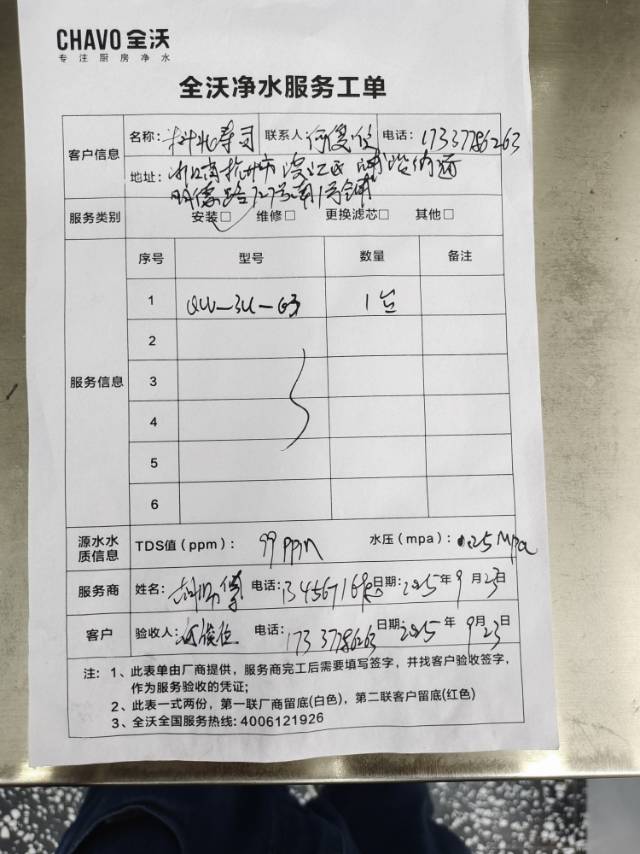 CHAVO 全沃
专注厨房净水
全沃净水服务工单
客户信息
名称: 寿司 联系人: 何俊 电话: 17337786263
地址: 浙江省杭州市滨江区
明德路727号南1号铺
服务类别 安装☑ 维修□ 更换滤芯□ 其他□
服务信息
序号 型号 数量 备注
1 QW-3U-03 1台
2
3
4
5
6
源水水质信息 TDS值(ppm): 99 ppm 水压(mpa): 0.25 Mpa
服务商 姓名: 电话: 日期: 2025年9月23日
客户 验收人: 何俊 电话: 17337786263 日期: 2025年9月23日
注: 1、此表单由厂商提供，服务商完工后需要填写签字，并找客户验收签字，
作为服务验收的凭证;
2、此表一式两份，第一联厂商留底(白色)，第二联客户留底(红色)
3、全沃全国服务热线: 4006121926